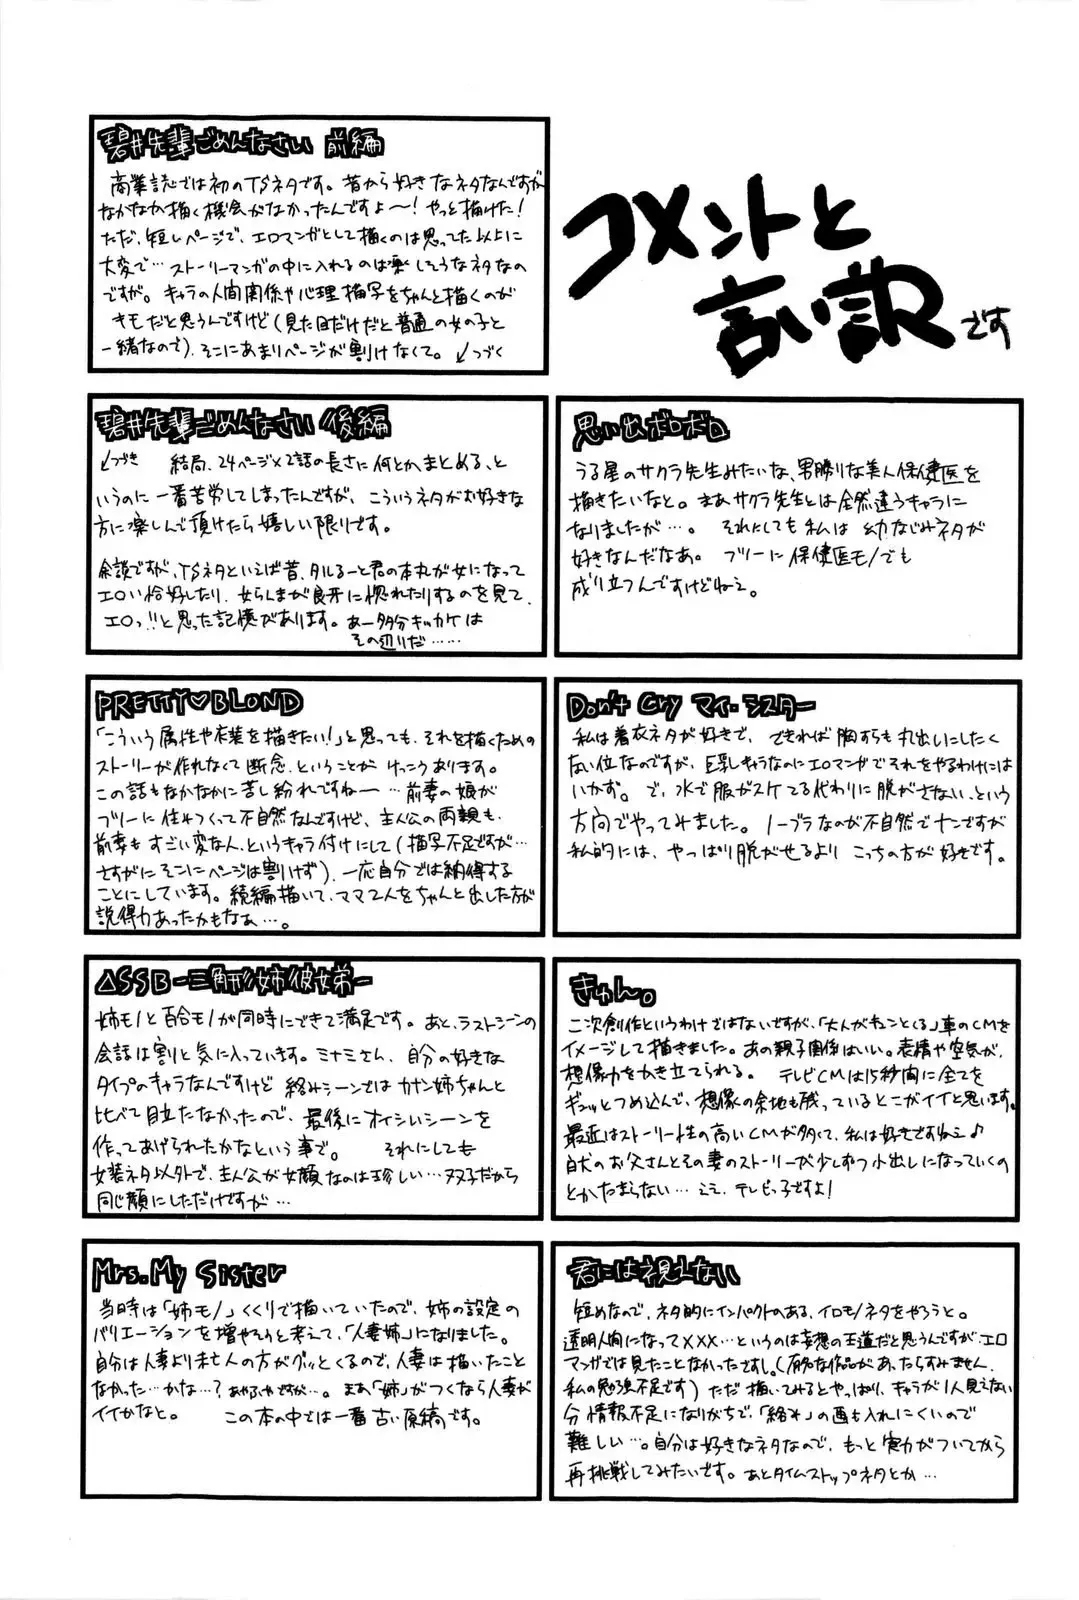 コメントと
言い訳です
碧井先輩ごめんなさい 前編
商業誌では初のTSネタです。昔から好きなネタなんですが
なかなか描く機会がなかったんですよ〜!やっと描けた!
ただ、短いページで、エロマンガとして描くのは思ってた以上に
大変で…ストーリーマンガの中に入れるのは楽しそうなネタなの
ですが。キャラの人間関係や心理描写をちゃんと描くのが
キモだと思うんですけど(見た目だけだと普通の女の子と
一緒なので)、そこにあまりページが割けなくて。↙つづく
碧井先輩ごめんなさい 後編
↙つづき 結局、24ページ×2話の長さに何とかまとめる、と
いうのに一番苦労してしまったんですが、こういうネタがお好きな
方に楽しんで頂けたら嬉しい限りです。
余談ですが、TSネタといえば昔、タルるーと君の本丸が女になって
エロい恰好したり、女らんまが良牙に惚れたりするのを見て、
エロっ!!と思った記憶があります。あー多分キッカケは
その辺りだ……
思い出ボロボロ
うる星のサクラ先生みたいな、男勝りな美人保健医を
描きたいなと。まあサクラ先生とは全然違うキャラに
なりましたが…。それにしても私は幼なじみネタが
好きなんだなあ。フツーに保健医モノでも
成り立つんですけどねえ。
PRETTY♡BLOND
「こういう属性や衣装を描きたい!」と思っても、それを描くための
ストーリーが作れなくて断念、ということがけっこうあります。
この話もなかなかに苦し紛れですね〜…前妻の娘が
フツーに住みつくって不自然なんですけど、主人公の両親も、
前妻もすごい変な人、というキャラ付けにして(描写不足ですが…
さすがにそこにページは割けず)、一応自分では納得する
ことにしています。続編描いて、ママ2人をちゃんと出した方が
説得力あったかもなぁ…。
Don't Cry マイ・シスター
私は着衣ネタが好きで、できれば胸すらも丸出しにしたく
ない位なのですが、巨乳キャラなのにエロマンガでそれをやるわけには
いかず。で、水で服がスケてる代わりに脱がさない、という
方向でやってみました。ノーブラなのが不自然でナンですが
私的には、やっぱり脱がせるよりこっちの方が好きです。
△SSB-三角形姉彼妹-
姉モノと百合モノが同時にできて満足です。あと、ラストシーンの
会話は割と気に入っています。ミナミさん、自分の好きな
タイプのキャラなんですけど絡みシーンではカナン姉ちゃんと
比べて目立たなかったので、最後にオイシいシーンを
作ってあげられたかなという事で。それにしても
女装ネタ以外で、主人公が女顔なのは珍しい…双子だから
同じ顔にしただけですが…
きゅん。
二次創作というわけではないですが、「大人がキュンとくる」車のCMを
イメージして描きました。あの親子関係はいい。表情や空気が、
想像力をかき立てられる。テレビCMは15秒間に全てを
ギュッとつめ込んで、想像の余地も残っているとこがイイと思います。
最近はストーリー性の高いCMが多くて、私は好きですねえ♪
白犬のお父さんとその妻のストーリーが少しずつ小出しになっていくの
とかたまらない…ええ、テレビっ子ですよ!
Mrs. My Sister
当時は「姉モノ」くくりで描いていたので、姉の設定の
バリエーションを増やそうと考えて、「人妻姉」になりました。
自分は人妻より未亡人の方がグッとくるので、人妻は描いたこと
なかった…かな…?あやふやですが…。まあ「姉」がつくなら人妻が
イイかなと。この本の中では一番古い原稿です。
君には視えない
短めなので、ネタ的にインパクトのある、イロモノネタをやろうと。
透明人間になって×××…というのは妄想の王道だと思うんですが、エロ
マンガでは見たことなかったですし。(有名な作品があったらすみません、
私の勉強不足です)ただ描いてみるとやっぱり、キャラが1人見えない
分情報不足になりがちで、「絡み」の画も入れにくいので
難しい…。自分は好きなネタなので、もっと実力がついてから
再挑戦してみたいです。あとタイムストップネタとか…